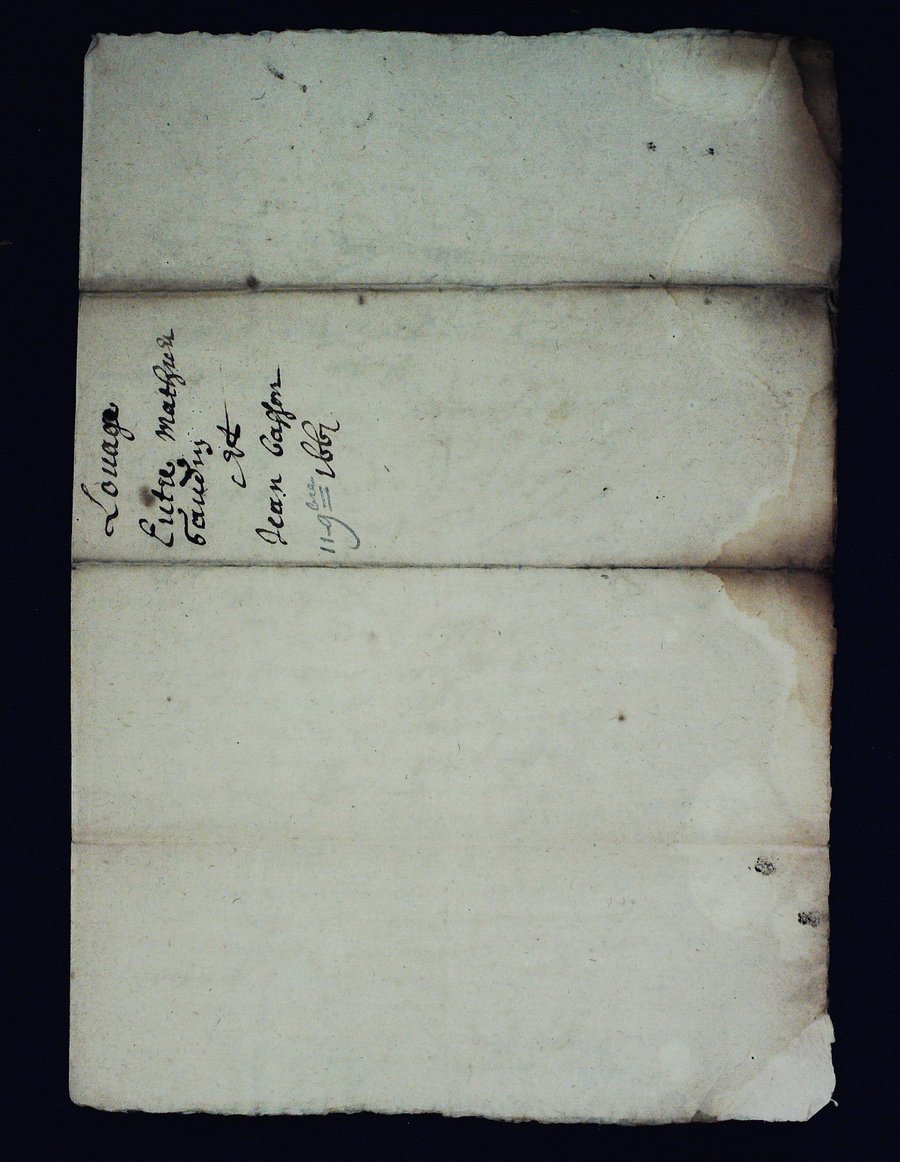 Louage
Entre Mathieu
Gaudry
et
Jean Basson
11 9bre 166